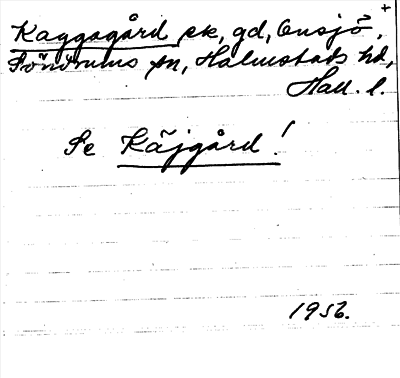 +
Kaggagård ek, gd, Onsjö,
Sönnums sn, Halmstads hd,
Hall. l.
Se Käjgård!
1956.